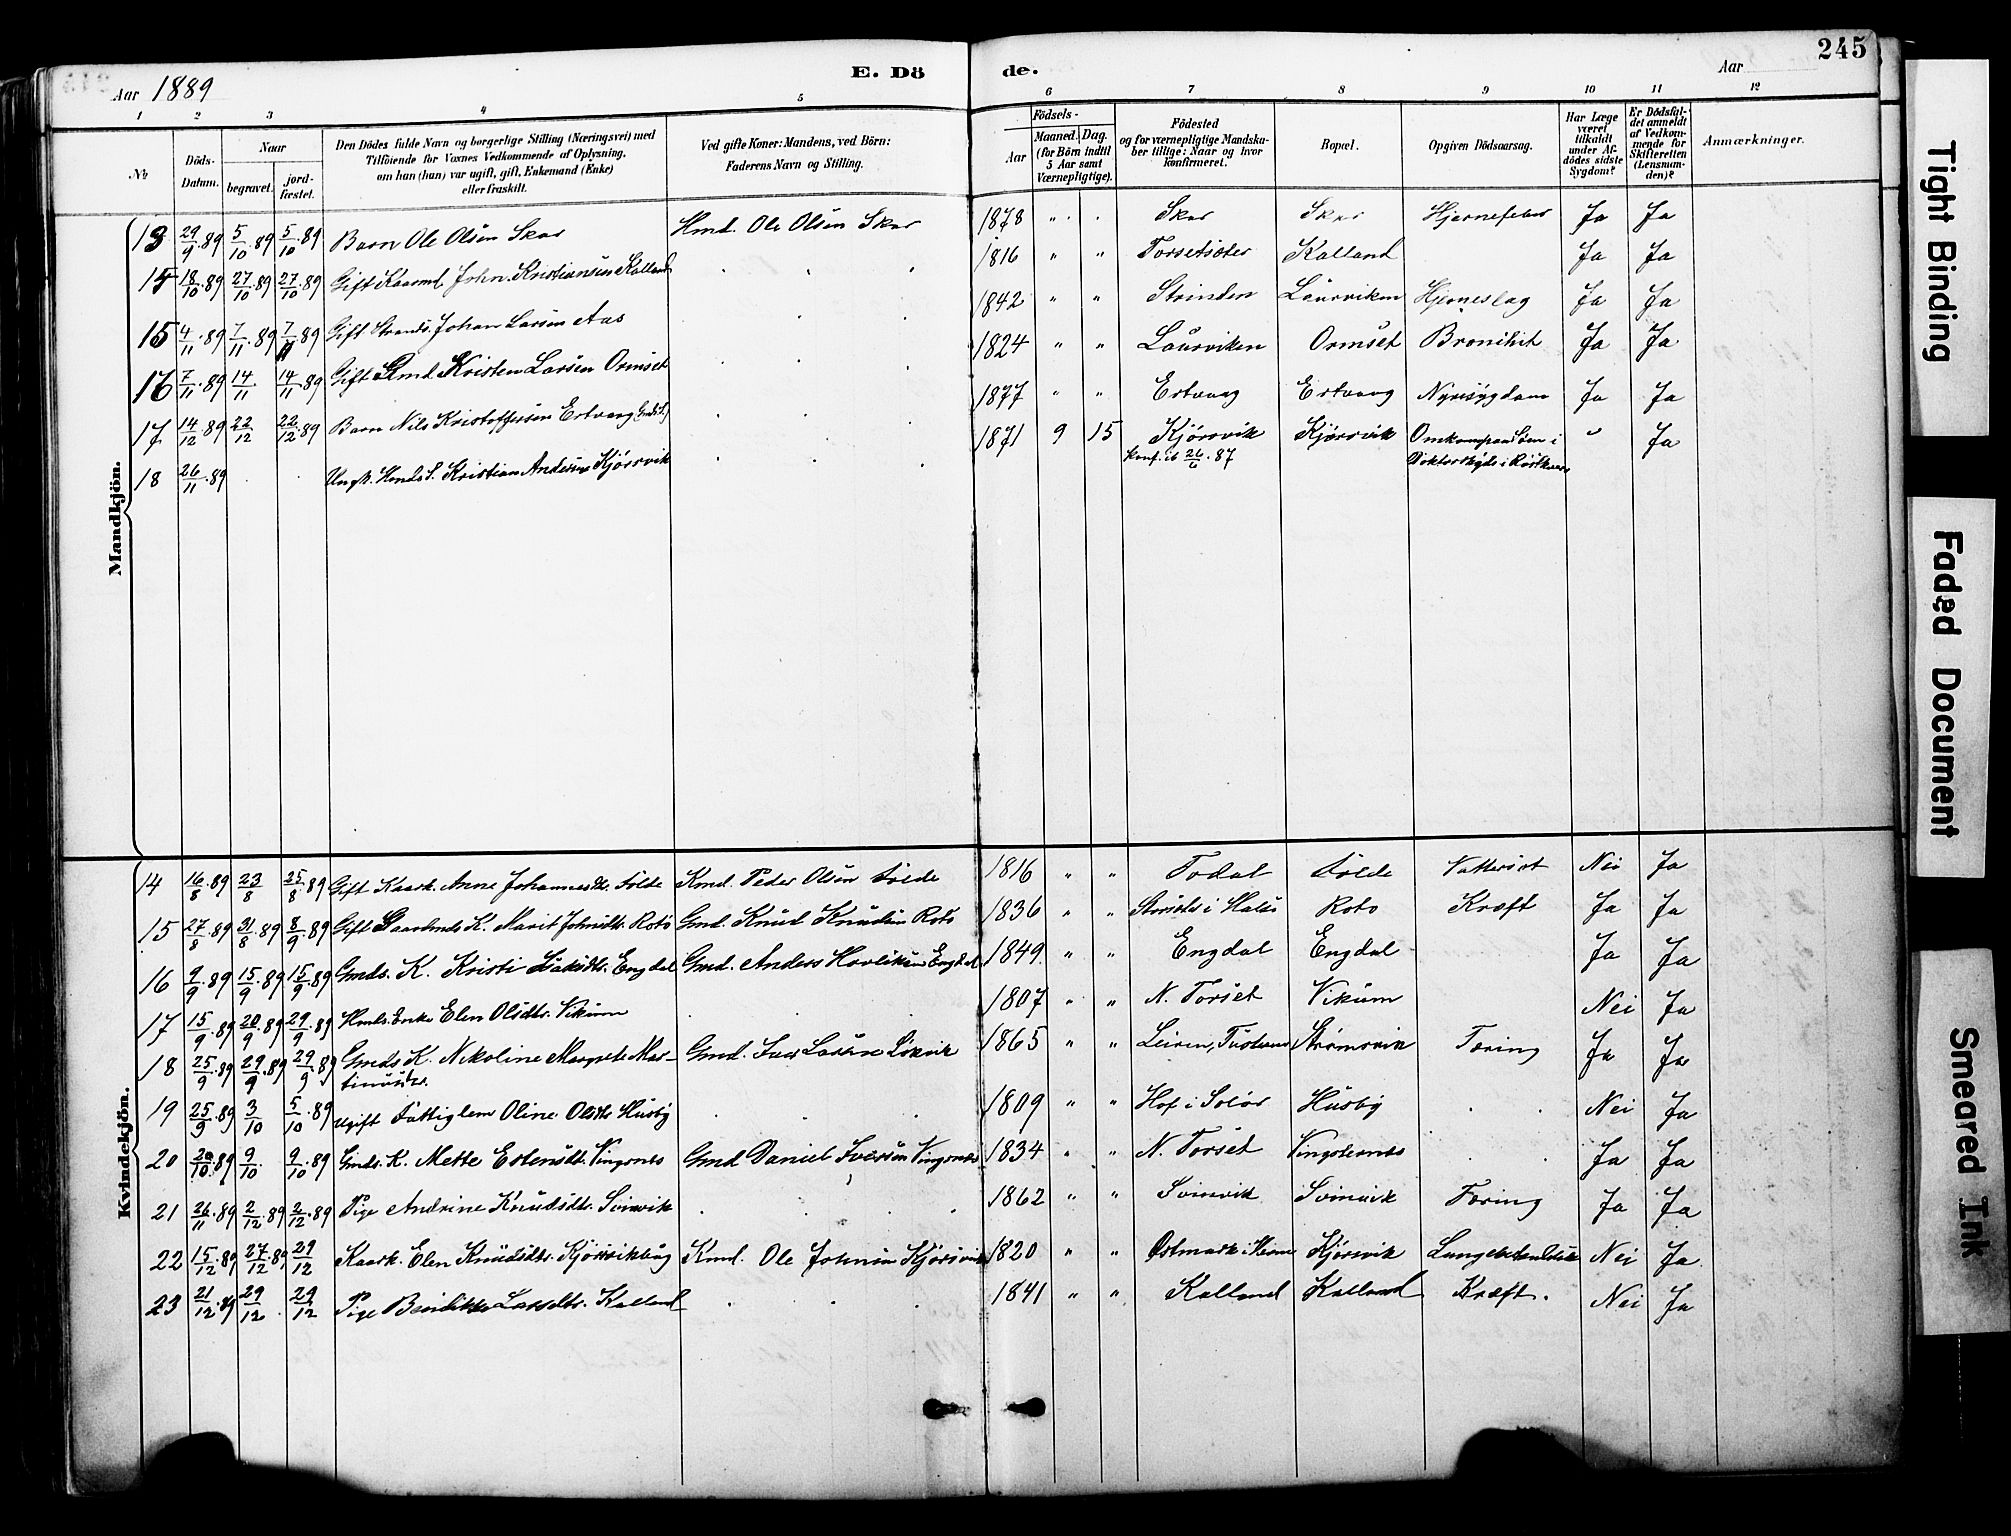 245
Aar 1889
E. Dö
de.
Aar
1 2 3 4 5 6 7 8 9 10 11 12
№
Döds-Datum.
Naar
begravet.
jord-fæstet.
Den Dödes fulde Navn og borgerlige Stilling (Næringsvei) med
Tilföiende for Voxnes Vedkommende af Oplysning,
om han (hun) var ugift, gift, Enkemand (Enke)
eller fraskilt.
Ved gifte Koner: Mandens, ved Börn:
Faderens Navn og Stilling.
Födsels-
Aar
Maaned. Dag.
(for Börn indtil
5 Aar samt
Værnepligtige).
Födested
og for værnepligtige Mandska-
ber tillige: Naar og hvor
konfirmeret.
Bopæl.
Opgiven Dödsaarsag.
Har Læge
været
tilkaldt
under Af-
dödes sidste
Sygdom?
Er Dödsfal-
det anmeldt
af Vedkom-
mende for
Skifteretten
(Lensman-
den)?
Anmærkninger.
Mandkjön.
13 29/9.89 5/10.89 5/10.89 Barn Ole Olsen Skar Hmd. Ole Olsen Skar 1878 " " Skar Skar Hjernefeber Ja Ja
18/10.89 27/10.89 27/10.89 Gift Kaarmd John Kristiansen Kalland 1816 " " Torsetsæter Kalland Ja Ja
15 4/11.89 7/11.89 7/11.89 Gift Strands. Johan Larsen Aas 1842 " " Strinden Laurviken Hjerneslag Ja Ja
16 7/11.89 14/11. 14/11.89 Gift Gmd Kristen Larsen Ormset 1824 " " Laurviken Ormset Bronchit Ja Ja
17 14/12.89 22/12 22/12.89 Barn Nils Kristoffersen Ertvaag 1877 " " Ertvaag Ertvaag Nyresygdom Ja Ja
18 26/11.89 Ungk. Hmds S. Kristian Andersen Kjørsvik 1871 9 15 Kjørsvik Kjørsvik Omkom paa Søen i " Ja
Konf. ib 26/6.87 Doktorskyds i
Kvindekjön.
14 16/8.89 23/8 25/8.89 Gift Kaark. Anne Johannesdtr. Følde Kmd. Peder Olsen Følde 1816 " " Todal Følde Vattersot Nei Ja
15 27/8.89 31/8.89 8/9.89 Gift Gaardmds K. Marit Johnsdtr. Rotø Gmd. Knud Knudsen Rotø 1836 " " i Halse Roto Kræft Ja Ja
16 9/9.89 15/9.89 15/9.89 Gmds. K. Kristi Isaksdtr. Engdal Gmd. Anders Engdal 1849 " " Engdal Engdal Ja Ja
17 15/9.89 20/9.89 29/9.89 Hmds. Enke Elen Olsdtr. Vikum 1807 " " N. Torset Vikum Nei Ja
18 25/9.89 29/9.89 29/9.89 Gmds K. Nikoline Margrete Mar- Gmd. Iver Larsen 1865 " " Leiren, Tustern Strømsvik Tæring Ja Ja
tinusdtr.
19 25/9.89 3/10 5/10.89 Ugift Fattiglem Oline Olsdtr Husby 1809 " " Hof i Solør Husby Nei Ja
20 9/10. 9/10.89 Gmds. K. Mette Estensdtr. Vingsnes Gmd Daniel Iversen Vingsnes 1834 " " N. Torset Vingsternes Ja Ja
21 26/11.89 2/12.89 2/12.89 Pige Andrine Knudsdtr. Svinvik 1862 " " Svinvik Svinvik Tæring Ja Ja
22 15/12.89 27/12.89 29/12 Kaark. Elen Knudsdtr. Kjørsvikbug Kmd. Ole Johnsen Kjørsvik 1820 " " Østmark i Hevne Kjørsvik Lungebetændelse Nei Ja
23 21/12.89 29/12. 29/12 Pige Bendikte Larsdtr. Kalland 1841 " " Kalland Kalland Kræft. Nei Ja
Tight Binding
Faded Document
Smeared Ink